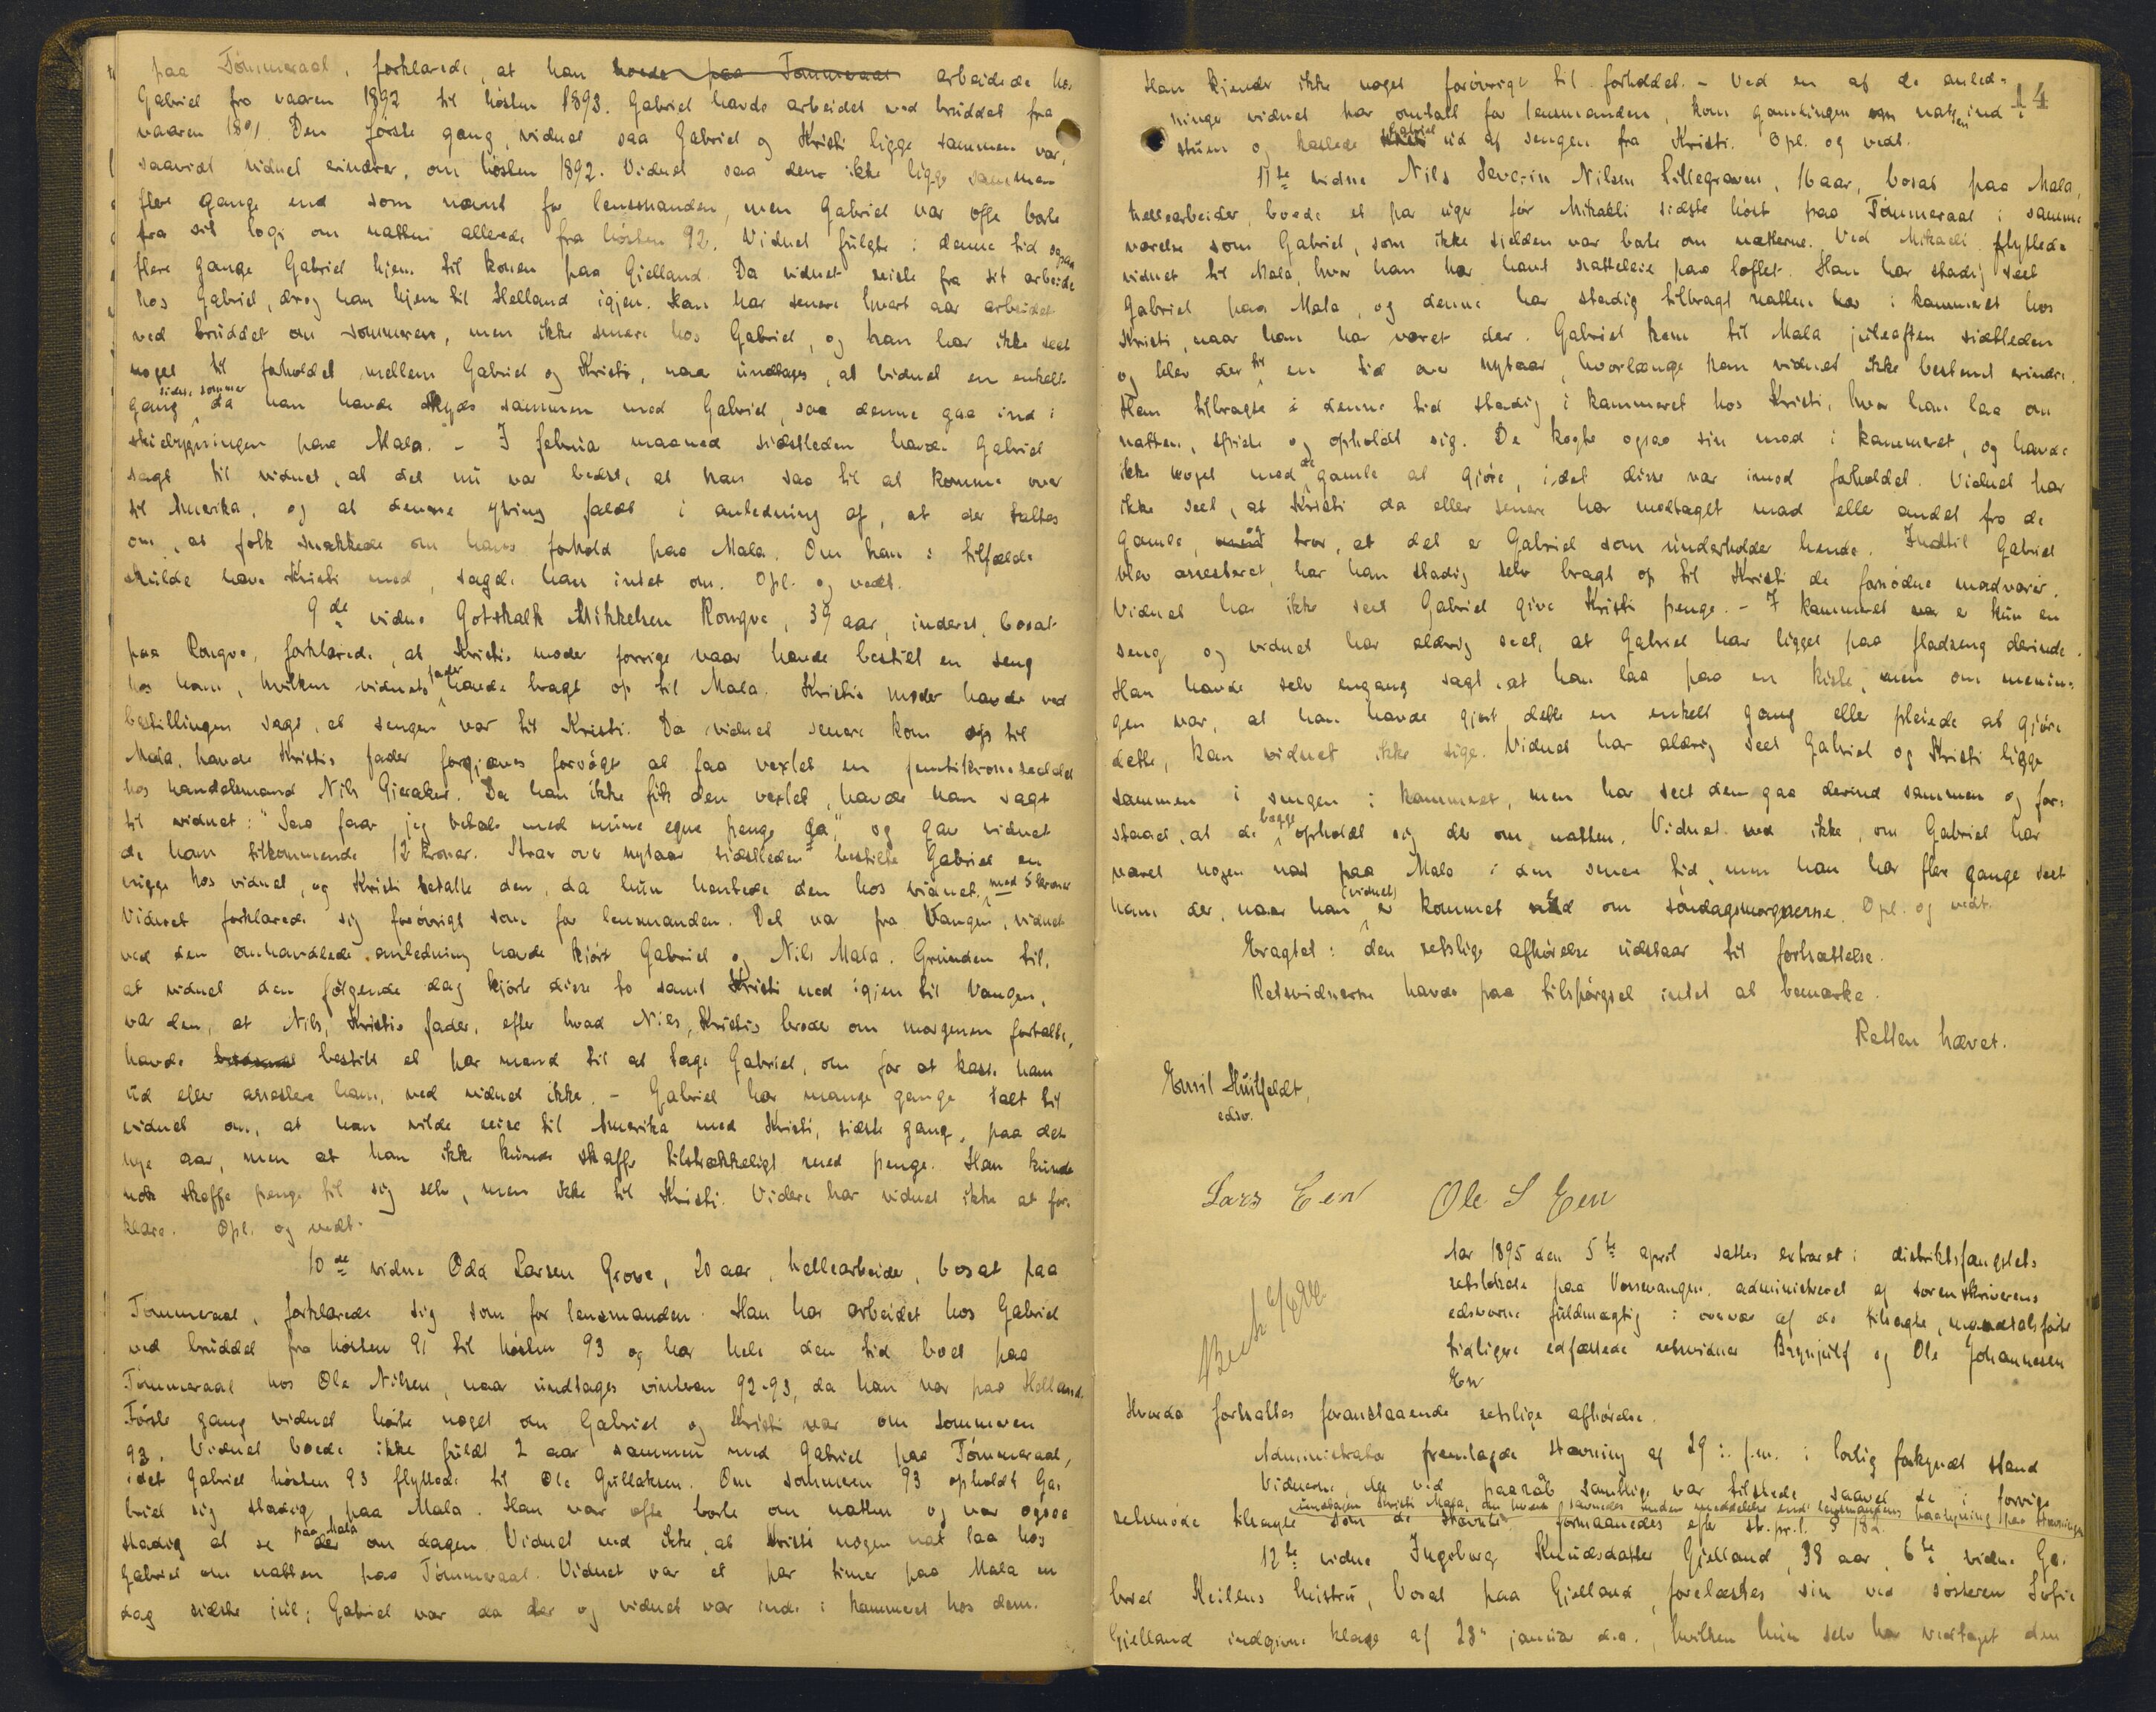 paa Tømmeraal, forklarede, at han boede paa Tømmeraal arbeidede hos
Gabriel fra vaaren 1892 til høsten 1893. Gabriel havde arbeidet ved bruddet fra
vaaren 1891. Den første gang vidnet saa Gabriel og Kristi ligge sammen var,
saavidt vidnet erindrer, om høsten 1892. Vidnet saa dem ikke ligge sammen
flere gange end som nævnt for lensmanden, men Gabriel var ofte borte
fra sit logi om natten allerede fra høsten 92. Vidnet fulgte i denne tid ogsaa
flere gange Gabriel hjem til konen paa Gjelland. Da vidnet reiste fra sit arbeide
hos Gabriel, drog han hjem til Helland igjen. Han har senere hvert aar arbeidet
ved bruddet om sommeren, men ikke senere hos Gabriel, og han har ikke seet
noget til forholdet mellem Gabriel og Kristi, naar undtages, at vidnet en enkelt
gang sidste sommer da han havde skyds sammen med Gabriel, saa denne gaa ind i
skiebygningen paa Mala. - I februa maaned sidstleden havde Gabriel
sagt til vidnet, at det nu var bedst, at han saa til at komme over
til Amerika, og at denne ytring faldt i anledning af, at der taltes
om, at folk snakkede om hans forhold paa Mala. Om han i tilfælde
skulde have Kristi med, sagde han intet om. Opl. og vedt.
9de vidne Gotskalk Mikkelsen Rongve, 39 aar, inderst, bosat
paa Rongve, forklarede, at Kristis moder forrige vaar havde bestilt en seng
hos ham, hvilken vidnets fader havde bragt op til Mala. Kristis moder havde ved
bestillingen sagt, at sengen var til Kristi. Da vidnet senere kom op til
Mala, havde Kristis fader forgjæves forsøgt at faa vexlet en femtikroneseddel
hos handelsmand Nils Gjeraker. Da han ikke fik den vexlet, havde han sagt
til vidnet: "Saa faar jeg betale med mine egne penge da", og gav vidnet
de ham tilkommende 12 kroner. Strax over nytaar sidstleden bestilte Gabriel en
vugge hos vidnet, og Kristi betalte den, da hun hentede den hos vidnet, med 5 kroner
Vidnet forklarede sig forøvrigt som for lensmanden. Det var fra Vangen, vidnet
ved den omhandlede anledning havde kjørt Gabriel og Nils Mala. Grunden til,
at vidnet den følgende dag kjørte disse to samt Kristi ned igjen til Vangen,
var den, at Nils, Kristis fader, efter hvad Nils, Kristis broder om morgenen fortalte,
havde bestilt et par mænd til at tage Gabriel, om for at kaste ham
ud eller arrestere ham, ved vidnet ikke. - Gabriel har mange gange talt til
vidnet om, at han vilde reise til Amerika med Kristi, sidste gang, paa det
nye aar, men at han ikke kunde skaffe tilstrækkeligt med penge. Han kunde
nok skaffe penge til sig selv, men ikke til Kristi. Videre har vidnet ikke at for-
klare. Opl. og vedt.
10de vidne Odd Larsen Grove, 20 aar, hellearbeider, bosat paa
Tømmeraal, forklarede sig som for lensmanden. Han har arbeidet hos Gabriel
ved bruddet fra høsten 91 til høsten 93 og har hele den tid boet paa
Tømmeraal hos Ole Nilsen, naar undtages vinteren 92-93, da han var paa Helland.
Første gang vidnet hørte noget om Gabriel og Kristi var om sommeren
93. Vidnet boede ikke fuldt 2 aar sammen med Gabriel paa Tømmeraal,
idet Gabriel høsten 93 flyttede til Ole Gullaksen. Om sommeren 93 opholdt Ga-
briel sig stadig paa Mala. Han var ofte borte om natten og var ogsaa
stadig at se paa Mala der om dagen. Vidnet ved ikke, at Kristi nogen nat laa hos
Gabriel om natten paa Tømmeraal. Vidnet var et par timer paa Mala en
dag sidste jul; Gabriel var da der og vidnet var inde i kammeret hos dem.
14
Han kjender ikke noget forøvrigt til forholdet. - Ved en af de anled-
ninge vidnet har omtalt for lensmanden, kom gamlingen om natten ind i
stuen og kastede Gabriel ud af sengen fra Kristi. Opl. og vedt.
11te vidne Nils Severin Nilsen Lillegraven, 16 aar, bosat paa Mala,
hellearbeider, boede et par uger før Mikaeli sidste høst paa Tømmeraal i samme
værelse som Gabriel, som ikke sjelden var borte om nætterne. Ved Mikaeli flyttede
vidnet til Mala, hvor han har havt natteleie paa loftet. Han har stadig seet
Gabriel paa Mala, og denne har stadig tilbragt natten i kammeret hos
Kristi, naar han har været der. Gabriel kom til Mala juleaften sidstleden
og blev der til en tid over nytaar, hvorlænge kan vidnet ikke bestemt erindre.
Han tilbragte i denne tid stadig i kammeret hos Kristi, hvor han laa om
natten, spiste og opholdt sig. De kogte ogsaa sin mad i kammeret, og havde
ikke noget med de gamle at gjøre, idet disse var imod forholdet. Vidnet har
ikke seet, at Kristi da eller senere har modtaget mad eller andet fra de
gamle, tror, at det er Gabriel som underholder hende. Indtil Gabriel
blev arresteret, har han stadig selv bragt op til Kristi de fornødne madvarer.
Vidnet har ikke seet Gabriel give Kristi penge. - I kammeret var er kun en
seng og vidnet har aldrig seet, at Gabriel har ligget paa fladseng derinde.
Han havde selv engang sagt, at han laa paa en kiste, men om menin-
gen var, at han havde gjort dette en enkelt gang eller pleiede at gjøre
dette, kan vidnet ikke sige. Vidnet har aldrig seet Gabriel og Kristi ligge
sammen i sengen i kammeret, men har seet dem gaa derind sammen og for-
staaet, at de begge opholdt sig der om natten. Vidnet ved ikke, om Gabriel har
været nogen nat paa Mala i den senere tid, men han har flere gange seet
ham der, naar han (vidnet) er kommet ned om søndagsmorgnerne. Opl. og vedt.
Eragtet: den retslige afhørelse udstaar til fortsættelse.
Retsvidnerne havde paa tilspørgsel intet at bemærke.
Retten hævet.
Emil Huitfeldt,
edsv.
Lars Een Ole S Een
Aar 1895 den 5te april sattes extraret i distriktsfængslets
retslokale paa Vossevangen, administreret af sorenskriverens
edsvorne fuldmægtig i overvær af de tilsagte, mandtalsførte
tidligere edfæstede retsvidner Brynjulf og Ole Johannesen
Een
Hvorda fortsattes foranstaaende retslige afhørelse.
Administrator fremlagde stævning af 29 f.m. i lovlig forkyndt stand
Vidnerne, der ved paaraab samtlige var tilstede, saavel de i forrige
undtagen Kristi Mala, om hvem savnedes anden meddelelse end lensmandens paategning paa stævningen
retsmøde tilsagte som de stævnte formaanedes efter str.pr.l. § 182.
12te vidne Ingeborg Knudsdatter Gjelland, 38 aar 6te vidne Ga-
briel Keilens hustru, bosat paa Gjelland, forelæstes sin ved søsteren Sofie
Gjelland indgivne klage af 28de januar d.a., hvilken hun selv har vedtaget den